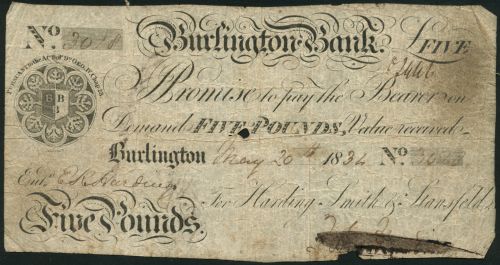 No. 3018 Burlington Bank. £ FIVE
I Promise to pay the Bearer on
Demand FIVE POUNDS, Value received
Burlington May 20th 1834 No.
Entd. E. R. Harding
For Harding Smith & Stansfeld
Five Pounds.
BB